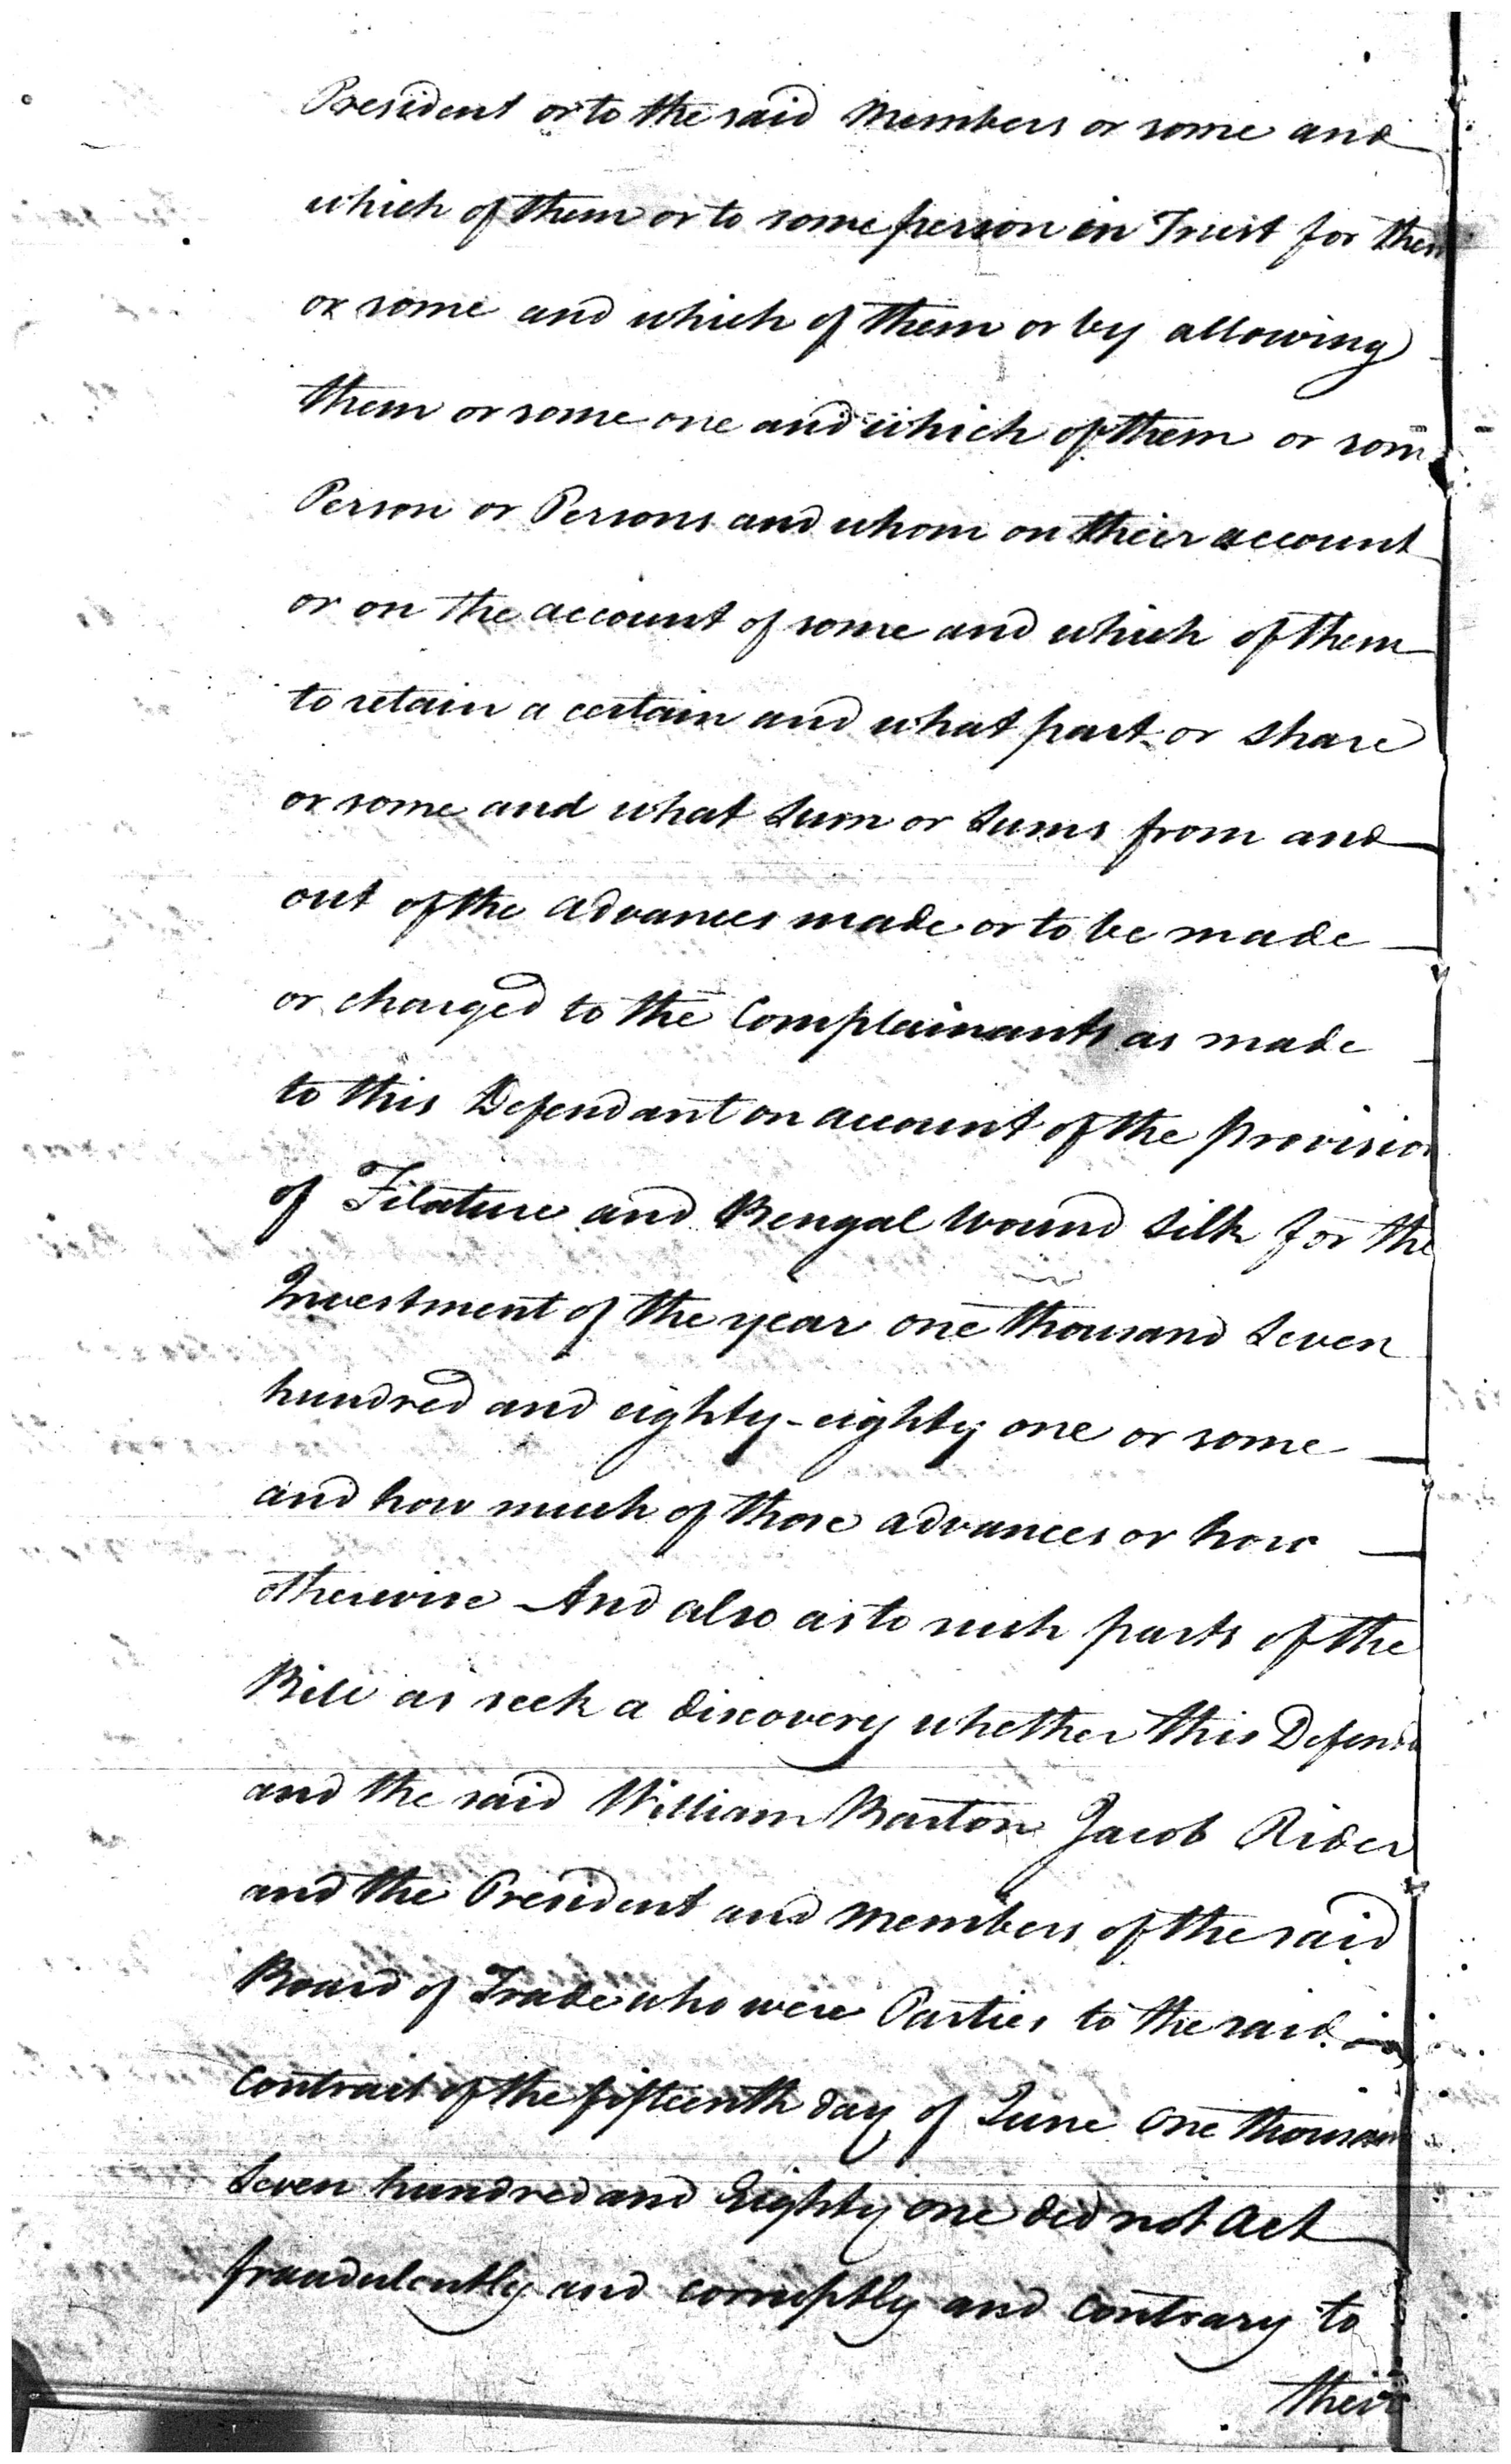 President or to the said Members or some and
which of them or to some person in Trust for them
or some and which of them or by allowing
them or some one and which of them or som
Person or Persons and whom on their account
or on the account of some and which of them
to retain a certain and what part or share
or some and what Sum or Sums from and
out of the advances made or to be made
or charged to the Complainants as made
to this Defendant on account of the provision
of Filature and Bengal Wound Silk for the
Investment of the year one thousand Seven
hundred and eighty-eighty one or some
and how much of those advances or how
otherwise And also as to such parts of the
Bill as seek a discovery whether this Defend
and the said William Barton Jacob Rider
and the President and Members of the said
Board of Trade who were Parties to the said
Contract of the fifteenth day of June One thousan
Seven hundred and Eighty one did not Act
fraudulently and corruptly and contrary to
their